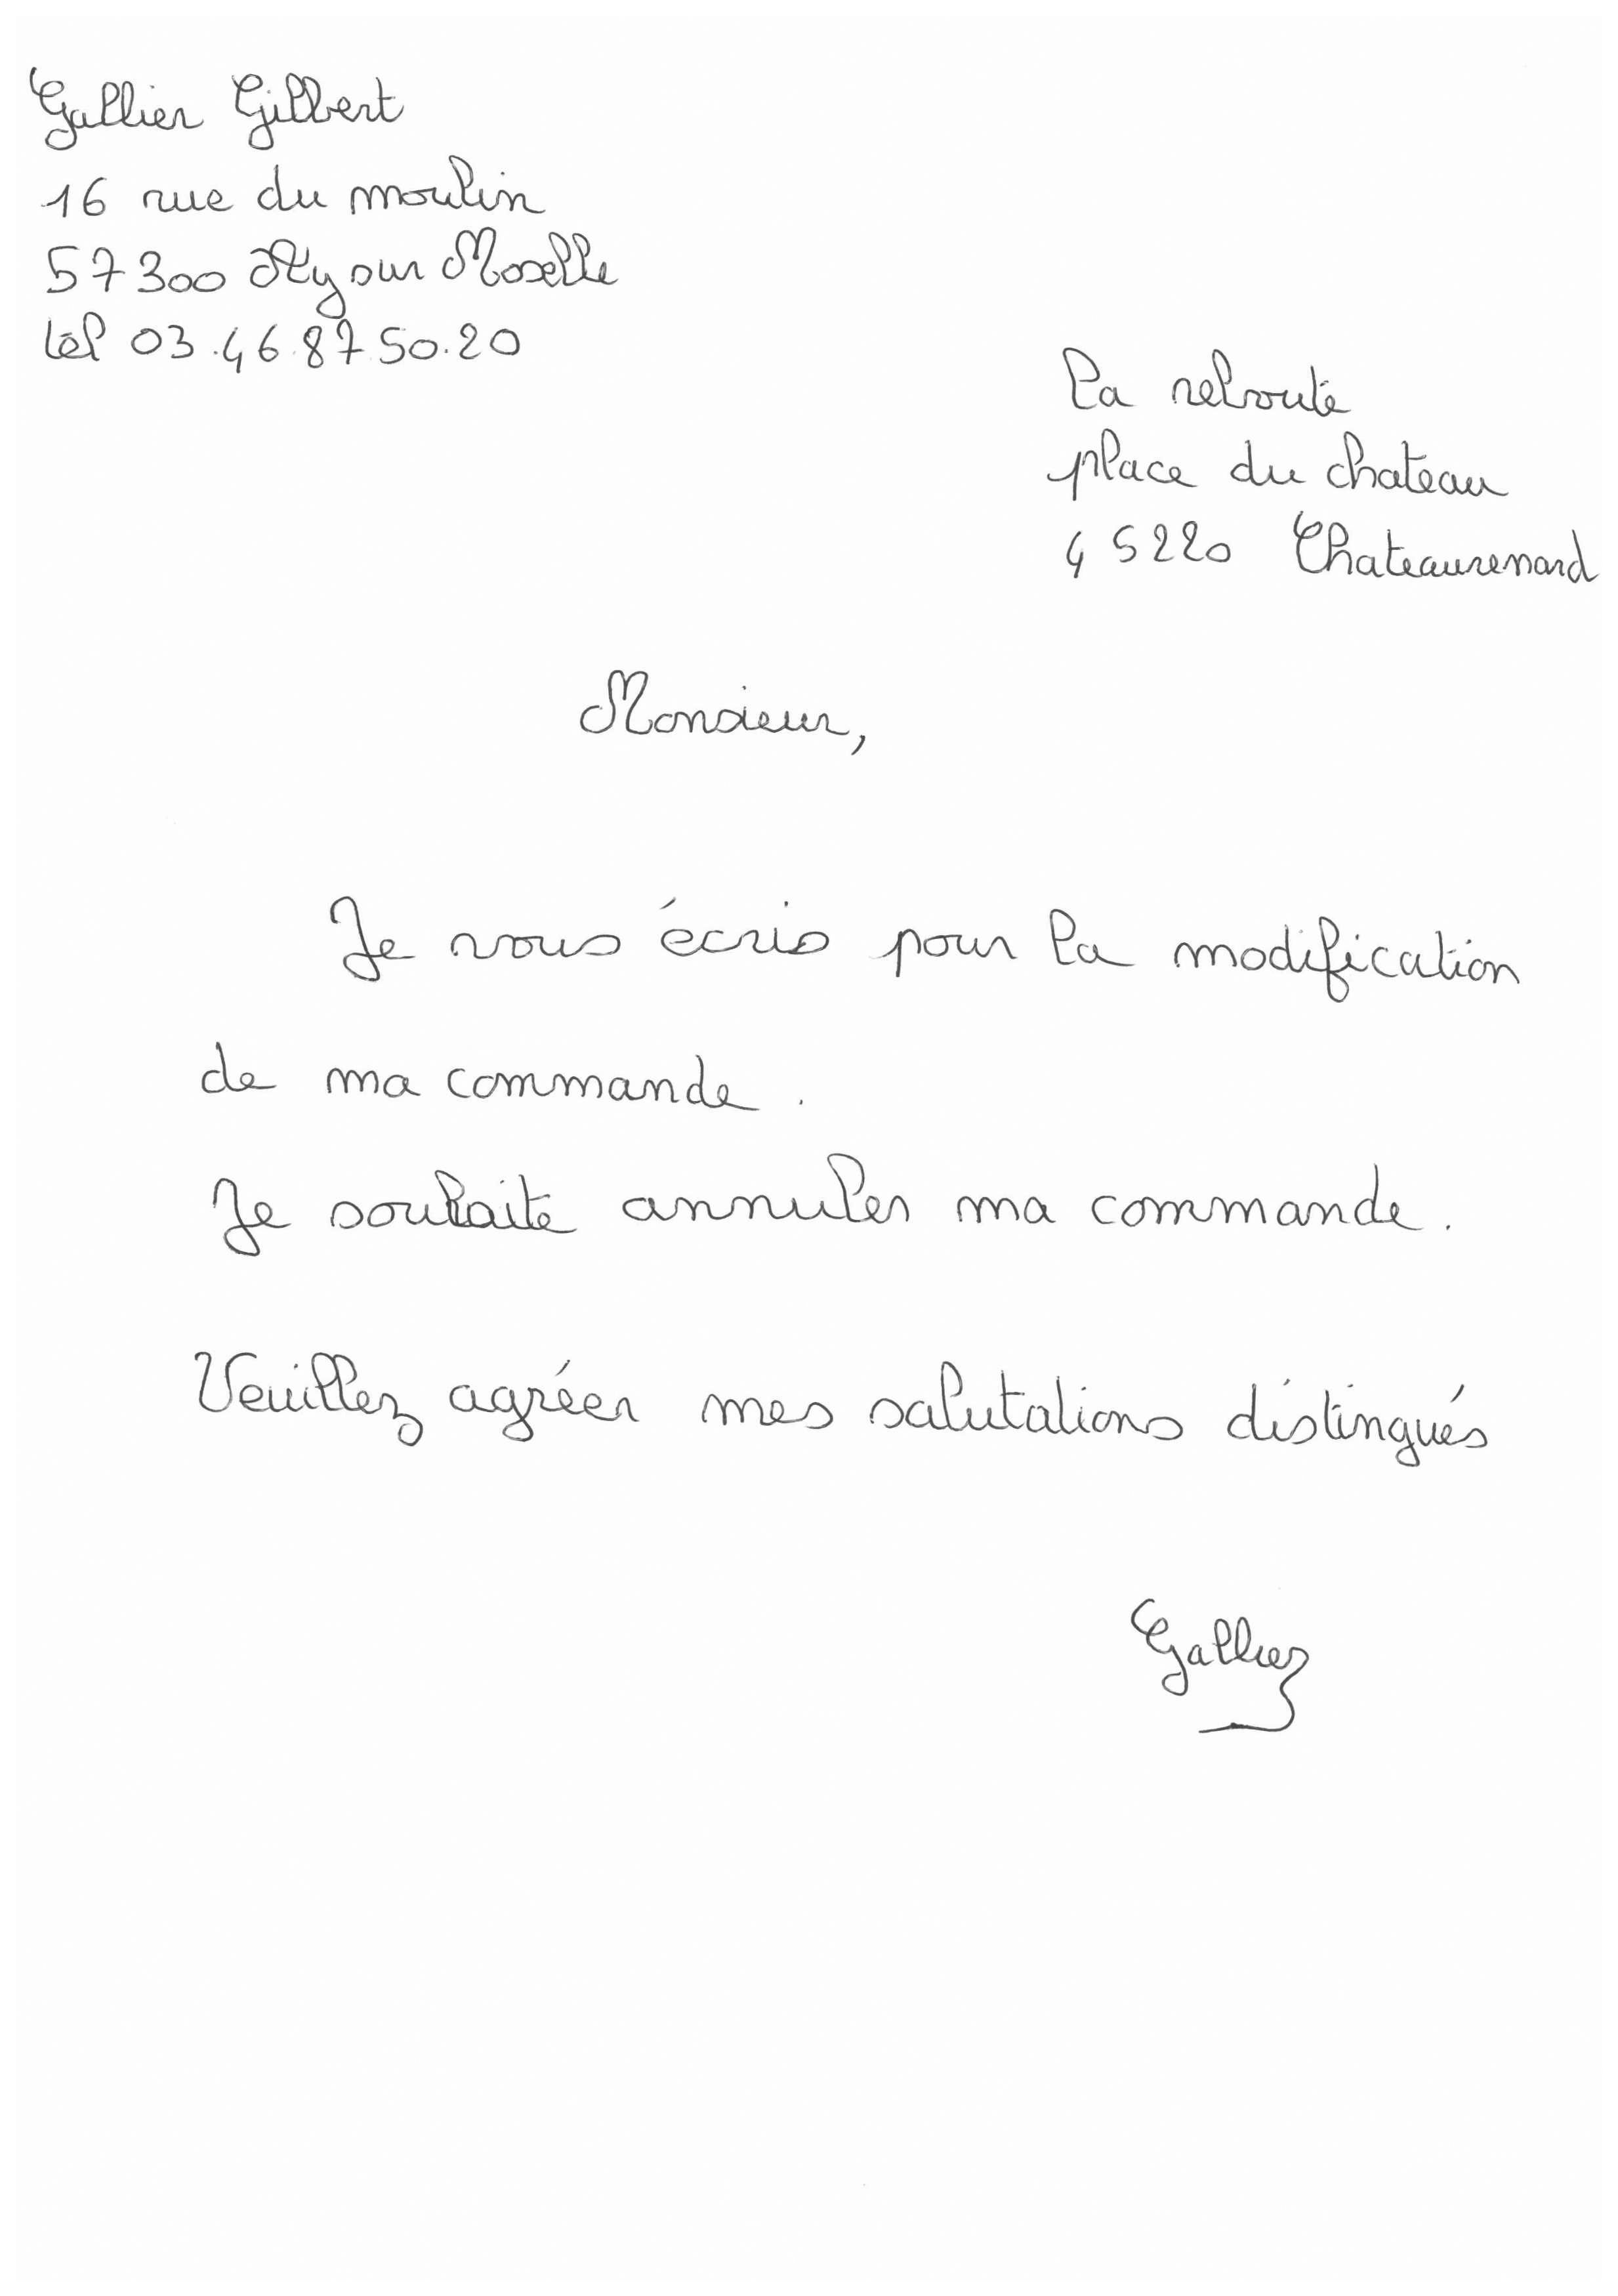 Gallier Gilbert
16 rue du moulin
57300 Ay sur Moselle
tél 03.46.87.50.20
La reboute
place du chateau
45220 Chateaurenard
Monsieur,
Je vous écris pour la modification
de ma commande.
Je souhaite annuler ma commande.
Veuillez agréer mes salutations distingués
Gallier